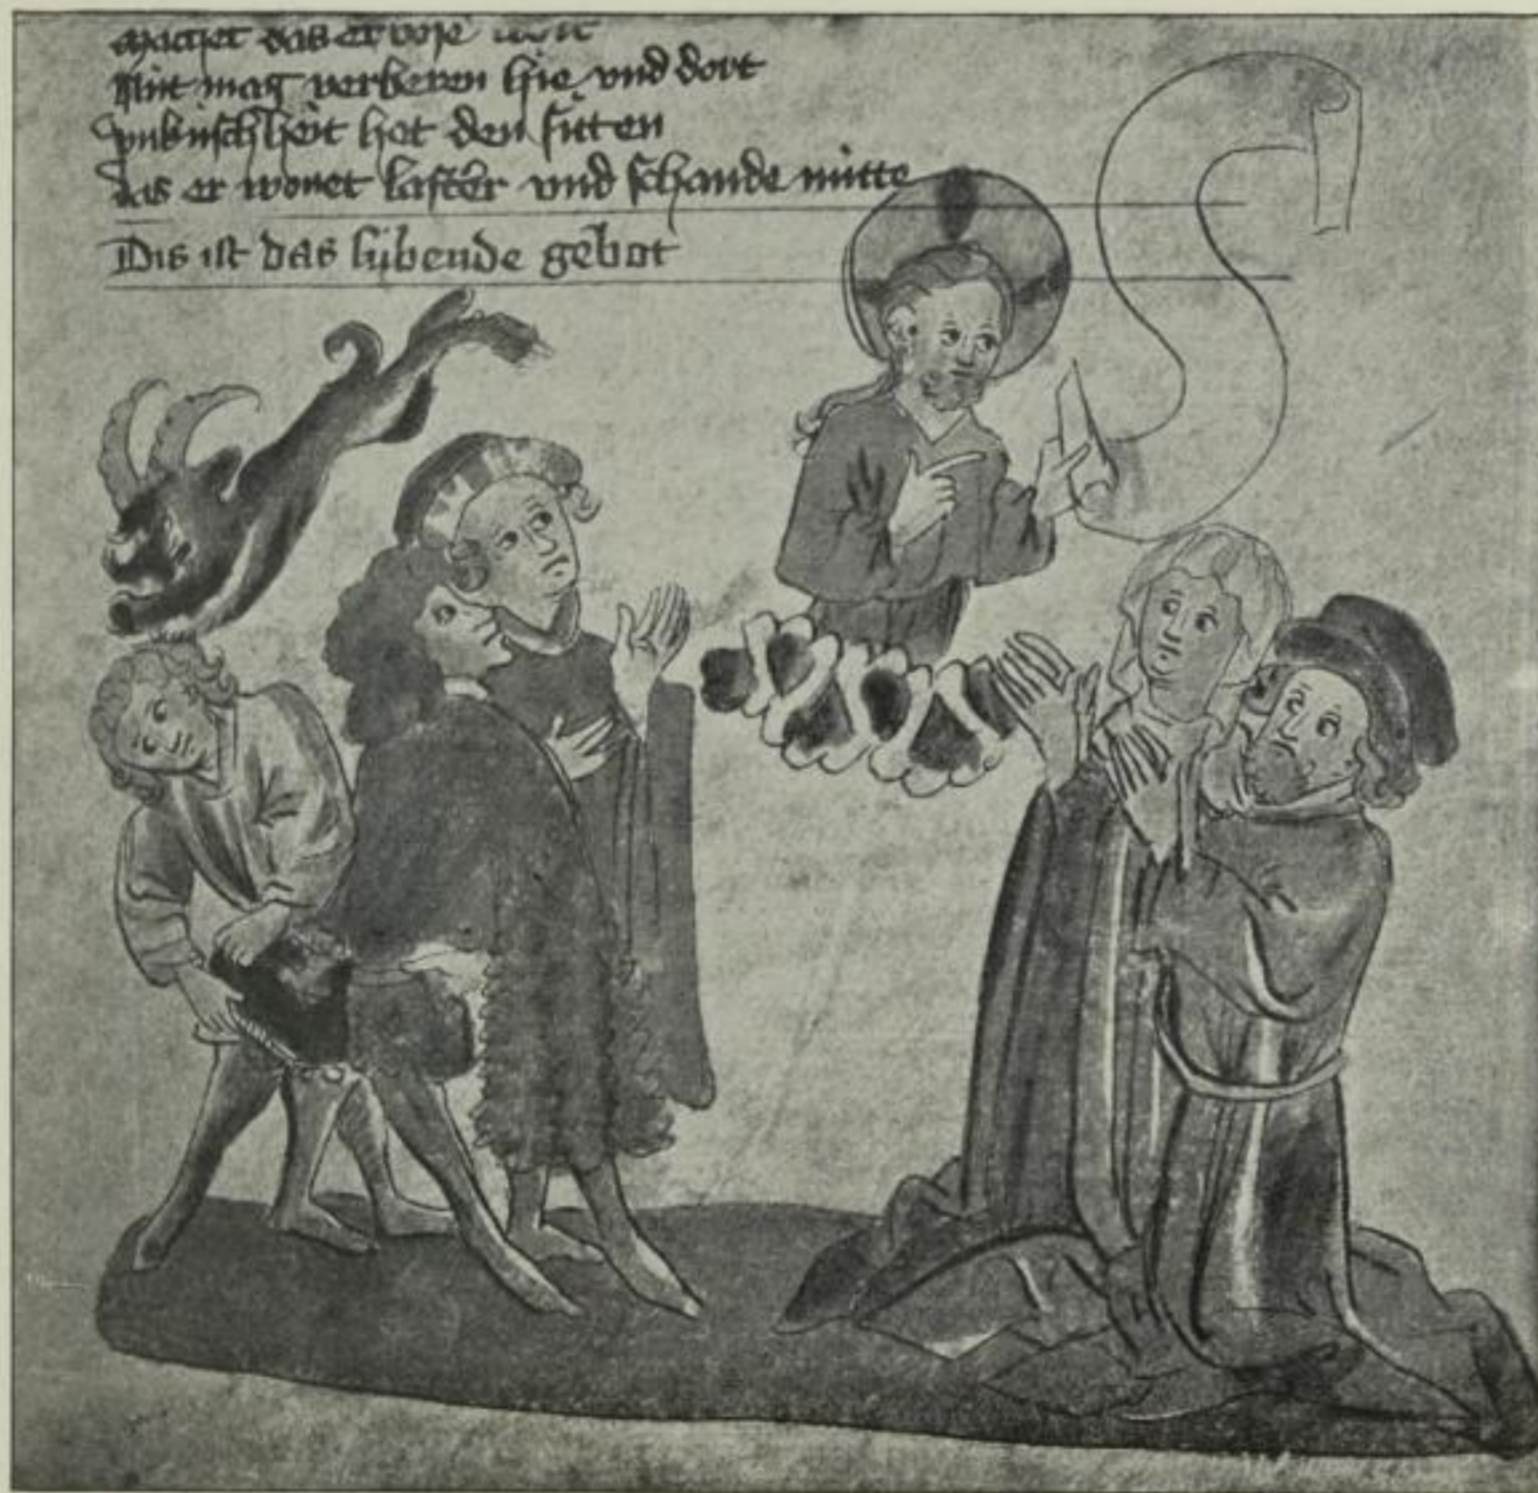 machet das er
Nit mag verberen hie vnd dort
vnkuscheit het den sitten
das er wonet laster vnd schande mitte
Dis ist das sybende gebot